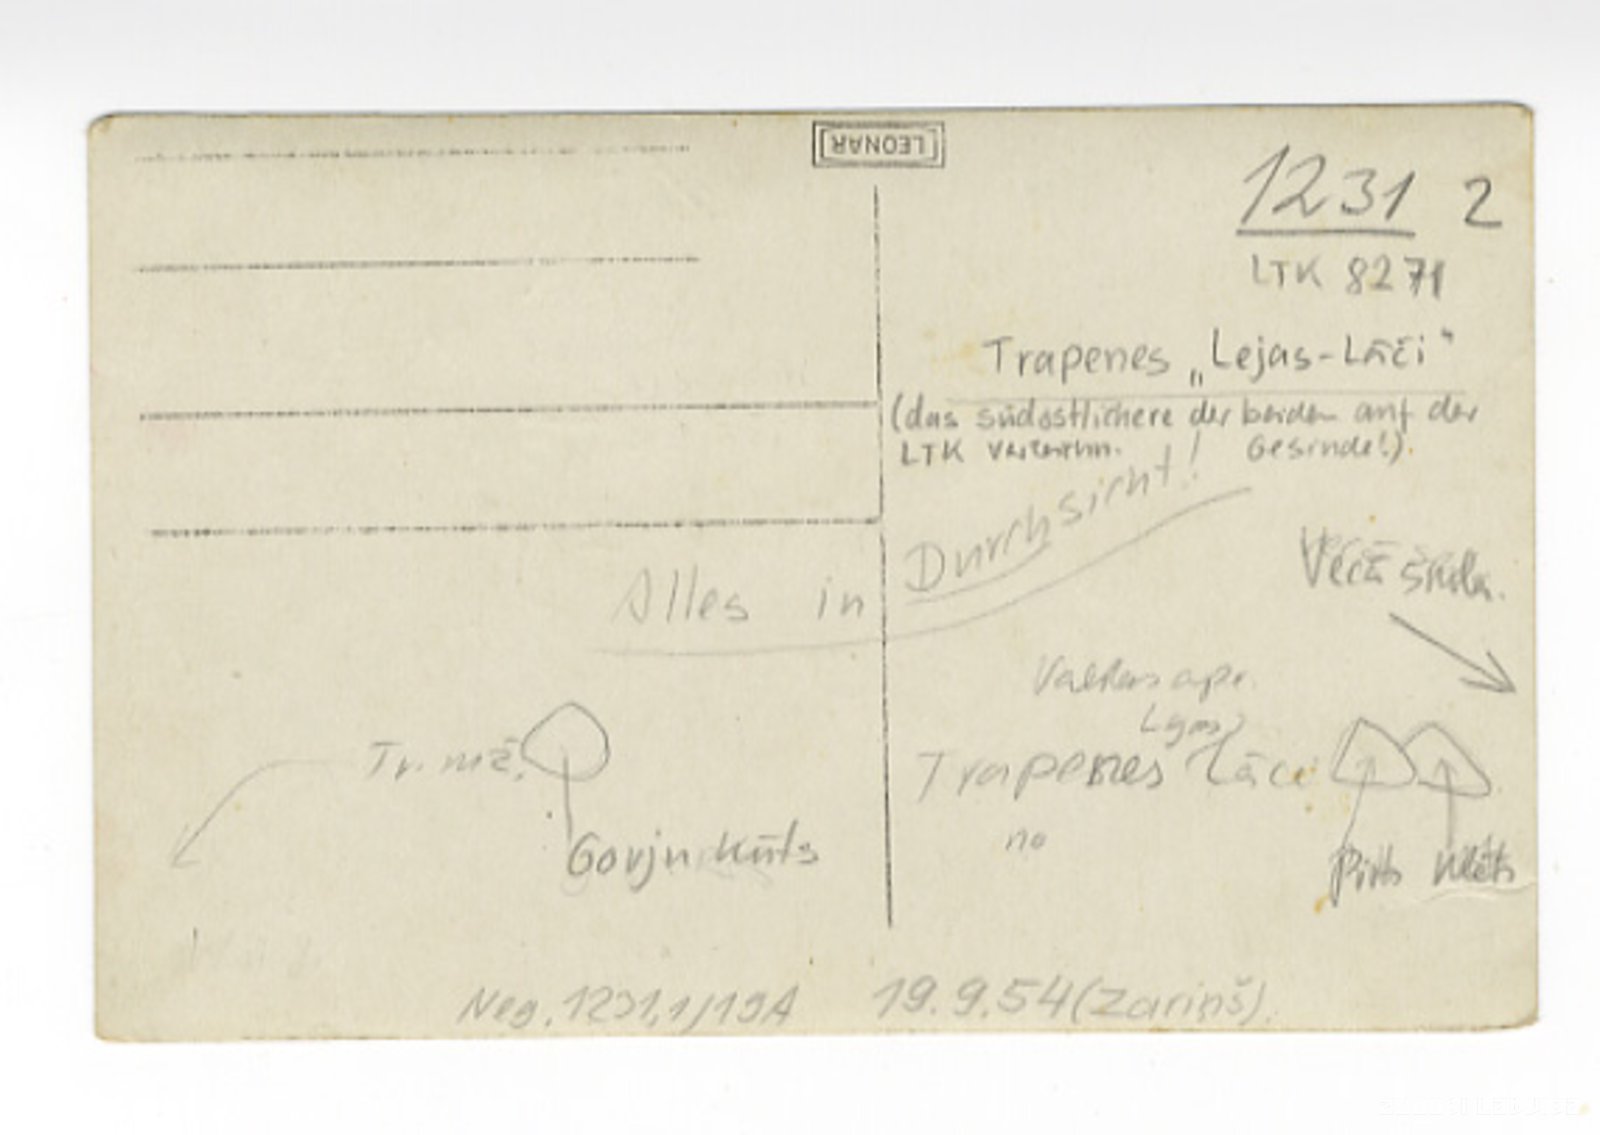 LEONAR
1231 2
LTK 8271
Trapenes „Lejas-Lāči“
(das südöstlichere der beiden auf der
LTK verzeichn. Gesinde!).
Alles in Durchsicht!
Vecā
Valkas apr.
Tr. mž.
Trapenes Lāči
no
Govju kūts
Pirts Klēts
Neg. 1231,1/19A 19.9.54 (Zariņš).